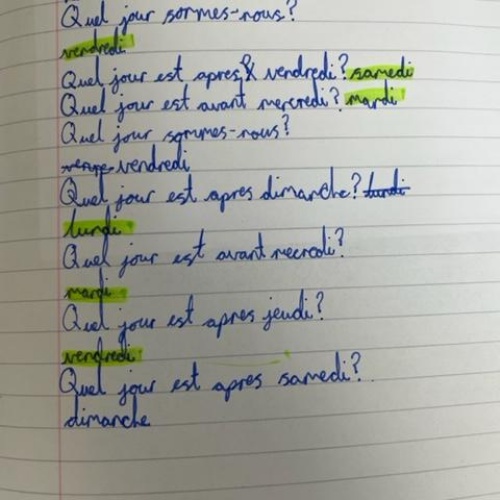 Quel jour sommes-nous?
vendredi
Quel jour est apres vendredi? samedi
Quel jour est avant mercredi? mardi
Quel jour sommes-nous?
vendredi
Quel jour est apres dimanche? lundi
lundi
Quel jour est avant mecredi?
mardi
Quel jour est apres jeudi?
vendredi
Quel jour est apres samedi?
dimanche